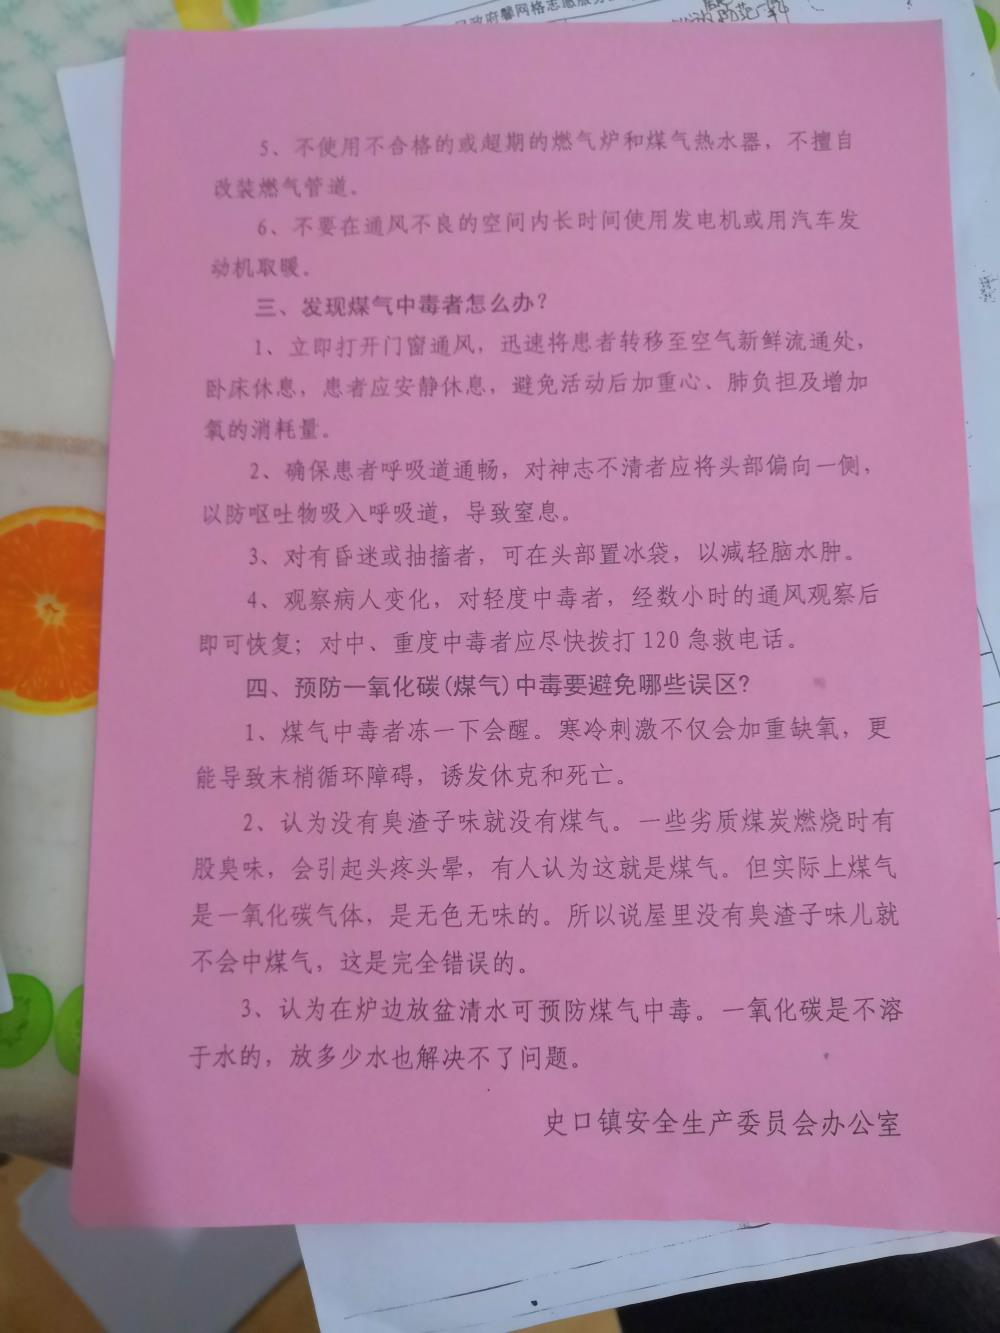 政府馨网格志愿服务
防范一氧
5、不使用不合格的或超期的燃气炉和煤气热水器，不擅自
改装燃气管道。
6、不要在通风不良的空间内长时间使用发电机或用汽车发
动机取暖。
三、发现煤气中毒者怎么办？
1、立即打开门窗通风，迅速将患者转移至空气新鲜流通处，
卧床休息，患者应安静休息，避免活动后加重心、肺负担及增加
氧的消耗量。
2、确保患者呼吸道通畅，对神志不清者应将头部偏向一侧，
以防呕吐物吸入呼吸道，导致窒息。
3、对有昏迷或抽搐者，可在头部置冰袋，以减轻脑水肿。
4、观察病人变化，对轻度中毒者，经数小时的通风观察后
即可恢复；对中、重度中毒者应尽快拨打 120 急救电话。
四、预防一氧化碳(煤气)中毒要避免哪些误区?
1、煤气中毒者冻一下会醒。寒冷刺激不仅会加重缺氧，更
能导致末梢循环障碍，诱发休克和死亡。
2、认为没有臭渣子味就没有煤气。一些劣质煤炭燃烧时有
股臭味，会引起头疼头晕，有人认为这就是煤气。但实际上煤气
是一氧化碳气体，是无色无味的。所以说屋里没有臭渣子味儿就
不会中煤气，这是完全错误的。
3、认为在炉边放盆清水可预防煤气中毒。一氧化碳是不溶
于水的，放多少水也解决不了问题。
史口镇安全生产委员会办公室